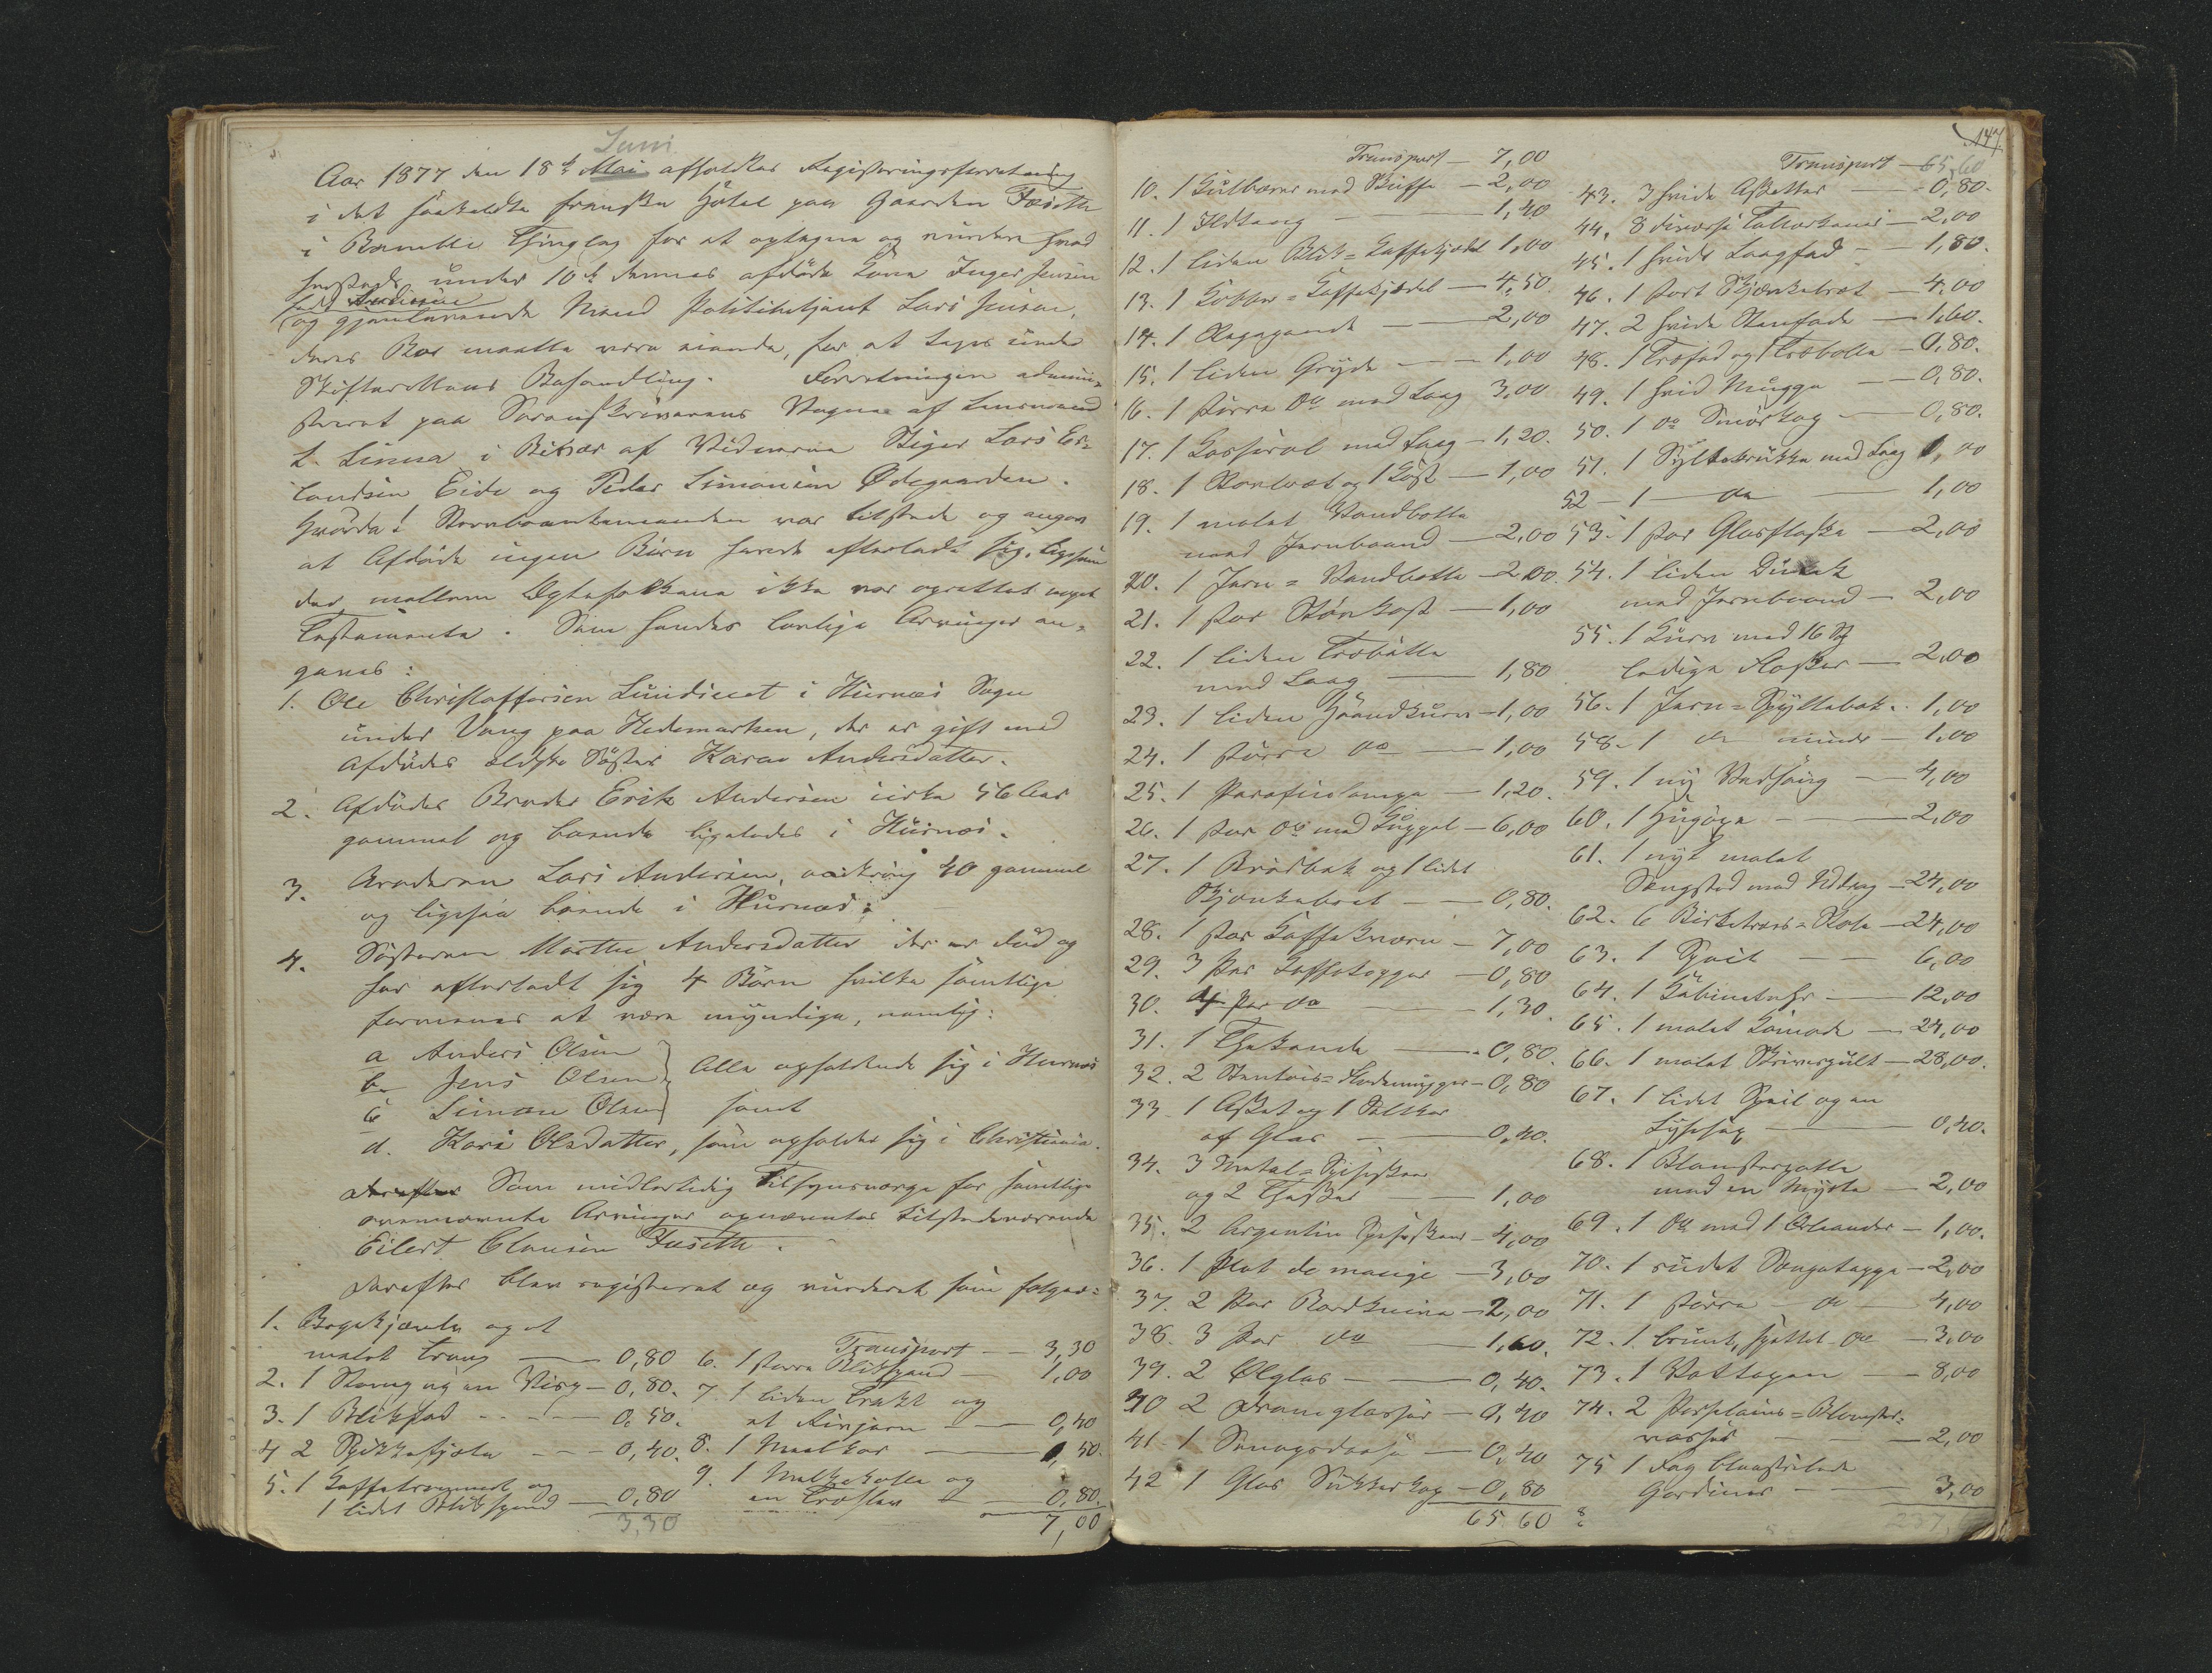 Juni
Aar 1877 den 18de Mai afholdtes Registreringsforretning
i det saakaldte franske Hotel paa Gaarden Fæseth
i Bamble Thinglag for at optegne og vurdere hvad
under 10de dennes afdøde Kone Inger Jensen
født Andersen
og gjenlevende Mand Politibetjent Lars Jensen,
deres Bo maatte være eiende, for at tages under
Skifterettens Behandling. Forretningen admini-
streret paa Sorenskriverens Vegne af Lensmand
L. Linna i Bisær af Vidnerne Stiger Lars Er-
landsen Eide og Peder Simonsen Ødegaarden.
Hvorda! Stervboenkemanden var tilstede og angav
at Afdøde ingen Børn havde efterladt sig, ligesom
der mellem Ægtefolkene ikke var oprettet noget
Testamente. Som hendes lovlige Arvinger an-
gaves:
1. Ole Christoffersen Lundsveet i Furnæs Sogn
under Vang paa Hedemarken, der er gift med
Afdødes ældste Søster Karen Andersdatter.
2. Afdødes Broder Erik Andersen cirka 56 Aar
gammel og boende ligeledes i Furnæs.
3. Broderen Lars Andersen, omkring 40 gammel
og ligesaa boende i Furnæs.
4. Søsteren Marthe Andersdatter der er død og
har efterladt sig 4 Børn hvilke samtlige
formenes at være myndige, nemlig:
a Anders Olsen
b. Jens Olsen } Alle opholdende sig i Furnæs
c Simon Olsen samt
d. Kari Olsdatter, som opholder sig i Christiania.
Derefter Som midlertidig Tilsynsværge for samtlige
ovennævnte Arvinger opnævntes tilstedeværende
Eilert Clausen Fæseth.
Derefter blev registreret og vurderet som følger:
1. Bogekjævle og et
malet Traug — 0,80
2. 1 Stamp og en Visp — 0,80.
3. 1 Blikfad — 0,50.
4 2 Spikkefjæle — 0,40.
5. 1 Kaffebrænder og
1 lidet Blikspand — 0,80
3,30
Transport — 3,30
6. 1 større Blikspand — 1,00
7. 1 liden Trakt og
et Rivjern — 0,40
8. 1 Melkar — 1,50.
9. 1 Melkekolle og
en Træslev — 0,80.
7,00
Transport — 7,00
10. 1 Kulbærer med Skuffe — 2,00
11. 1 Ildtang — 1,40
12. 1 liden Blik=Kaffekjedel 1,00
13. 1 Kobber=Kaffekjedel — 4,50.
14. 1 Stegepande — 2,00
15. 1 liden Gryde — 1,00
16. 1 større do med Laag 3,00
17. 1 Kasserol med Laag — 1,20.
18. 1 Støvbræt og 1 Kost — 1,00
19. 1 malet Vandbøtte
med Jernbaand — 2,00
20. 1 Jern=Vandbøtte — 2,00.
21. 1 stor Støvkost — 1,00
22. 1 liden Træbøtte
med Laag — 1,80
23. 1 liden Haandkurv — 1,00
24. 1 større do — 1,00
25. 1 Parafinlampe — 1,20.
26. 1 stor do med Kuppel — 6,00
27. 1 Brødbak og 1 lidet
Skjænkebræt — 0,80.
28. 1 stor Kaffekværn — 7,00
29. 3 Par Kaffekopper — 0,80
30. 4 Par do — 1,30.
31. 1 Thekande — 0,80.
32. 2 Stentøis=Flødemugger — 0,80
33. 1 Asket og 1 Saltkar
af Glas — 0,40.
34. 3 Metal=Spiseskeer
og 2 Theskeer — 1,00
35. 2 Argentin Spiseskeer — 4,00
36. 1 Plat de menage — 3,00
37. 2 Par Bordknive — 2,00
38. 3 Par do — 1,60.
39. 2 Ølglas — 0,40.
40 2 Dramglasser — 0,40
41. 1 Smørdaase — 0,40
42 1 Glas Sukkerkop — 0,80
65 60
147
Transport — 65,60
43. 3 hvide Asketter — 0,80.
44. 8 diverse Tallerkener — 2,00
45. 1 hvidt Laagfad — 1,80.
46. 1 stort Skjænkebræt — 4,00
47. 2 hvide Stenfade — 1,60.
48. 1 Træfad og 1 Træbolle — 0,80.
49. 1 hvid Mugge — 0,80.
50. 1 do Smørkop — 0,80.
51. 1 Syltekrukke med Laag 1,00
52 — 1 do — 1,00
53. 1 stor Glasflaske — 2,00
54. 1 liden Dunk
med Jernbaand — 2,00
55. 1 Kurv med 16 Stk
ledige Flasker — 2,00
56. 1 Jern=Spyttebak. 1,00
58. 1 do mindre — 1,00
59. 1 ny Vedsaug — 4,00
60. 1 Hugøxe — 2,00
61. 1 nyt malet
Sengsted med Uddrag — 24,00
62. 6 Birketræs=Stole — 24,00
63. 1 Speil — 6,00
64. 1 Kabinetuhr — 12,00
65. 1 malet Komode — 24,00
66. 1 malet Skriverpult — 28,00.
67. 1 lidet Speil og en
Lysesax — 0,40.
68. 1 Blomsterpotte
med en Myrte — 2,00
69. 1 do med 1 Oleander — 1,00.
70. 1 rudet Sengeteppe — 2,00
71. 1 større do — 4,00
72. 1 brunt, spættet do — 3,00
73. 1 Vatteppe — 8,00
74. 2 Porselains=Blomster=
vaser — 2,00
75 1 Fag blomstrede
Gardiner — 3,00
237,